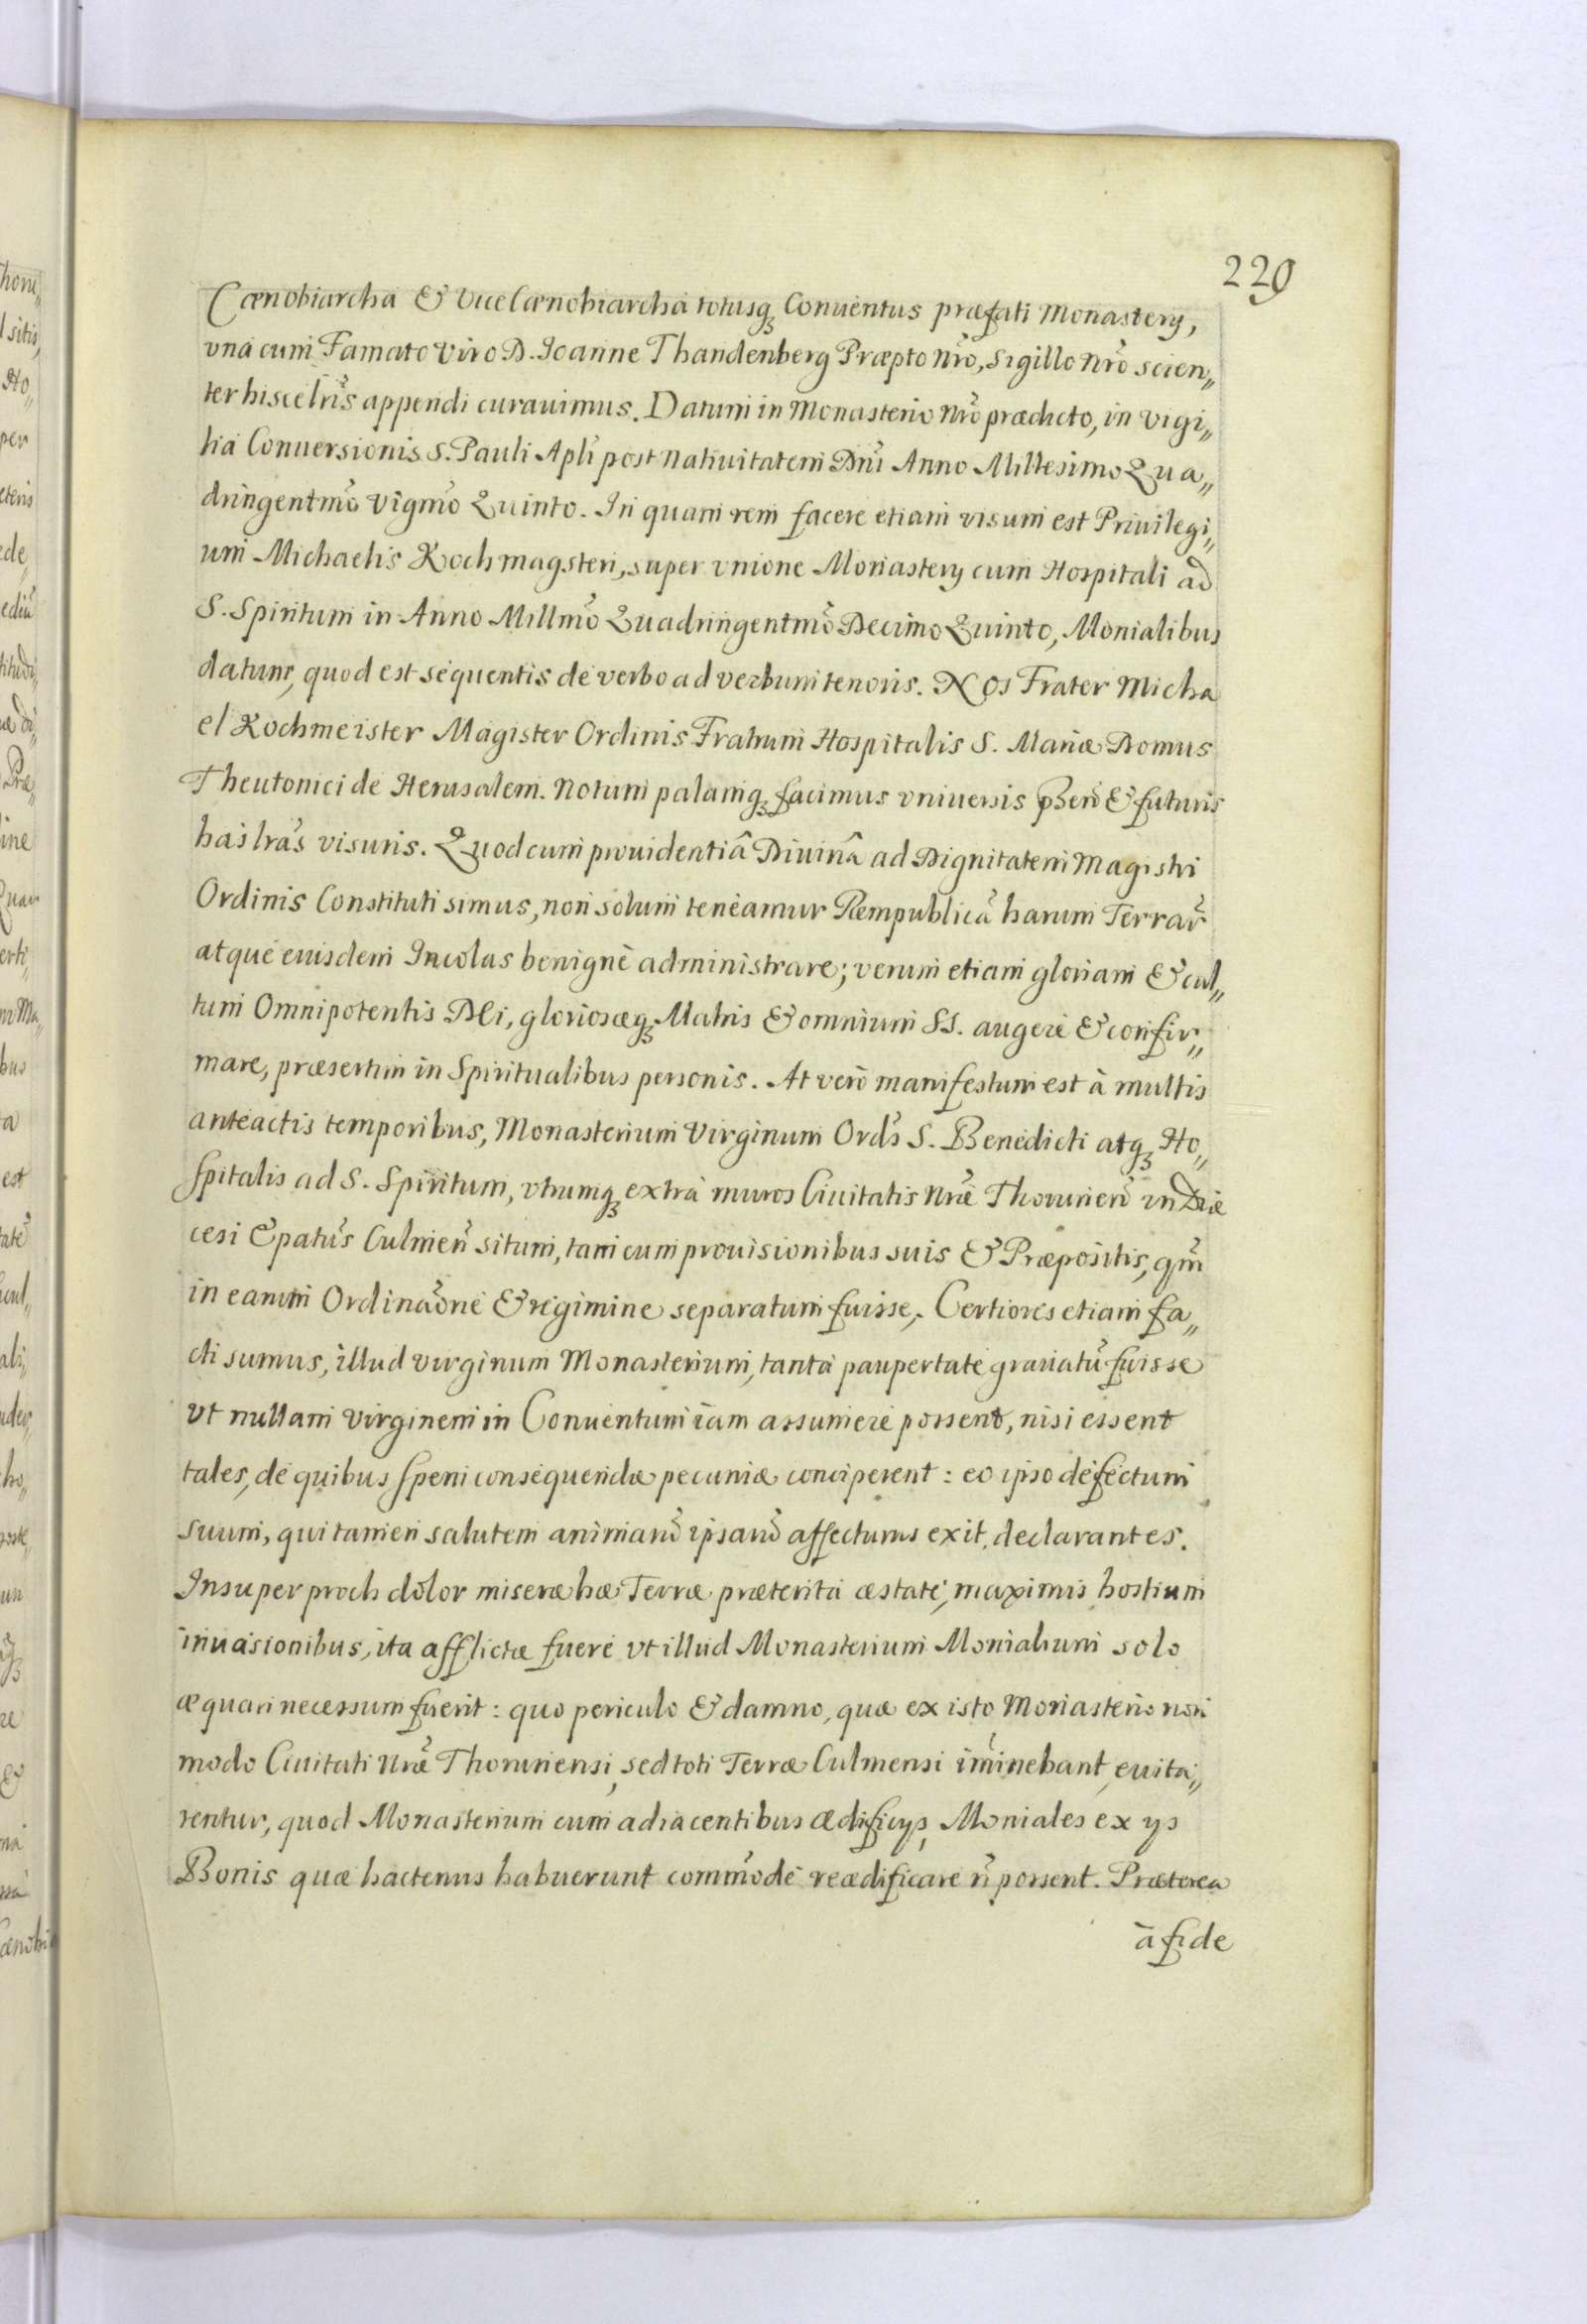 229
Cœnobiarcha & ViceCœnobiarcha totusq₃ Conuentus præfati Monastery,
vna cum Famato Viro D. Joanne Thandenberg Præpto nr̃o, sigillo nr̃o scien„
ter hisce lr̃is appendi curauimus. Datum in Monasterio nr̃o prædicto, in vigi„
lia Conuersionis S. Pauli Apl̃i post natiuitatem Dñi Anno Millesimo Qua„
dringentmõ vigmõ Quinto. In quam rem facere etiam visum est Priuilegi„
um Michaelis Kochmagsteri, super vnione Monastery cum Hospitali ad
S. Spiritum in Anno Millmõ Quadringentmõ Decimo Quinto, Monialibus
datum, quod est sequentis de verbo ad verbum tenoris. Nos Frater Micha
el Kochmeister Magister Ordinis Fratrum Hospitalis S. Mariæ Domus
Theutonici de Herusalem. Notum palamq₃ facimus vniuersis p̃señ & futuris
has lrãs visuris. Quod cum prouidentiâ Diuinâ ad Dignitatem Magistri
Ordinis Constituti simus, non solum teneamur Rempublicã harum Terrar̃
atque euisdem Incolas benignè administrare; verum etiam gloriam & cul„
tum Omnipotentis Dei, gloriosæq₃ Matris & omnium SS. augere & confir„
mare, præsertim in Spiritualibus personis. At verò manifestum est à multis
anteactis temporibus, Monasterium Virginum Ord̃s S. Benedicti atq₃ Ho„
spitalis ad S. Spiritum, vtrumq₃ extra muros Ciuitatis nrẽ Thoruneñ in Diæ
cesi Epatũs Culmeñ situm, tam cum prouisionibus suis & Præpositis, qm̃
in earum Ordinaõne & regimine separatum fuisse, Certiores etiam fa„
cti sumus, illud virginum Monasterium, tanta paupertate grauatũ fuisse
vt nullam virginem in Conuentum iam assumere possent, nisi essent
tales, de quibus spem consequendæ pecuniæ conciperent: eo ipso defectum
suum, qui tamen salutem animarũ ipsarũ affecturus exit, declarantes.
Insuper proch dolor miseræ hæ Terræ præterita æstate, maximis hostium
inuasionibus, ita afflictæ fuere vt illud Monasterium Monialium solo
æquari necessum fuerit: quo periculo & damno, quæ ex isto Monasterio non
modo Ciuitati nrẽ Thoruniensi, sed toti Terræ Culmensi im̃inebant, euita„
rentur, quod Monasterium cum adiacentibus ædificys, Moniales ex ys
Bonis quæ hactenus habuerunt comm̃ode reædificare ñ possent. Præterea
à fide